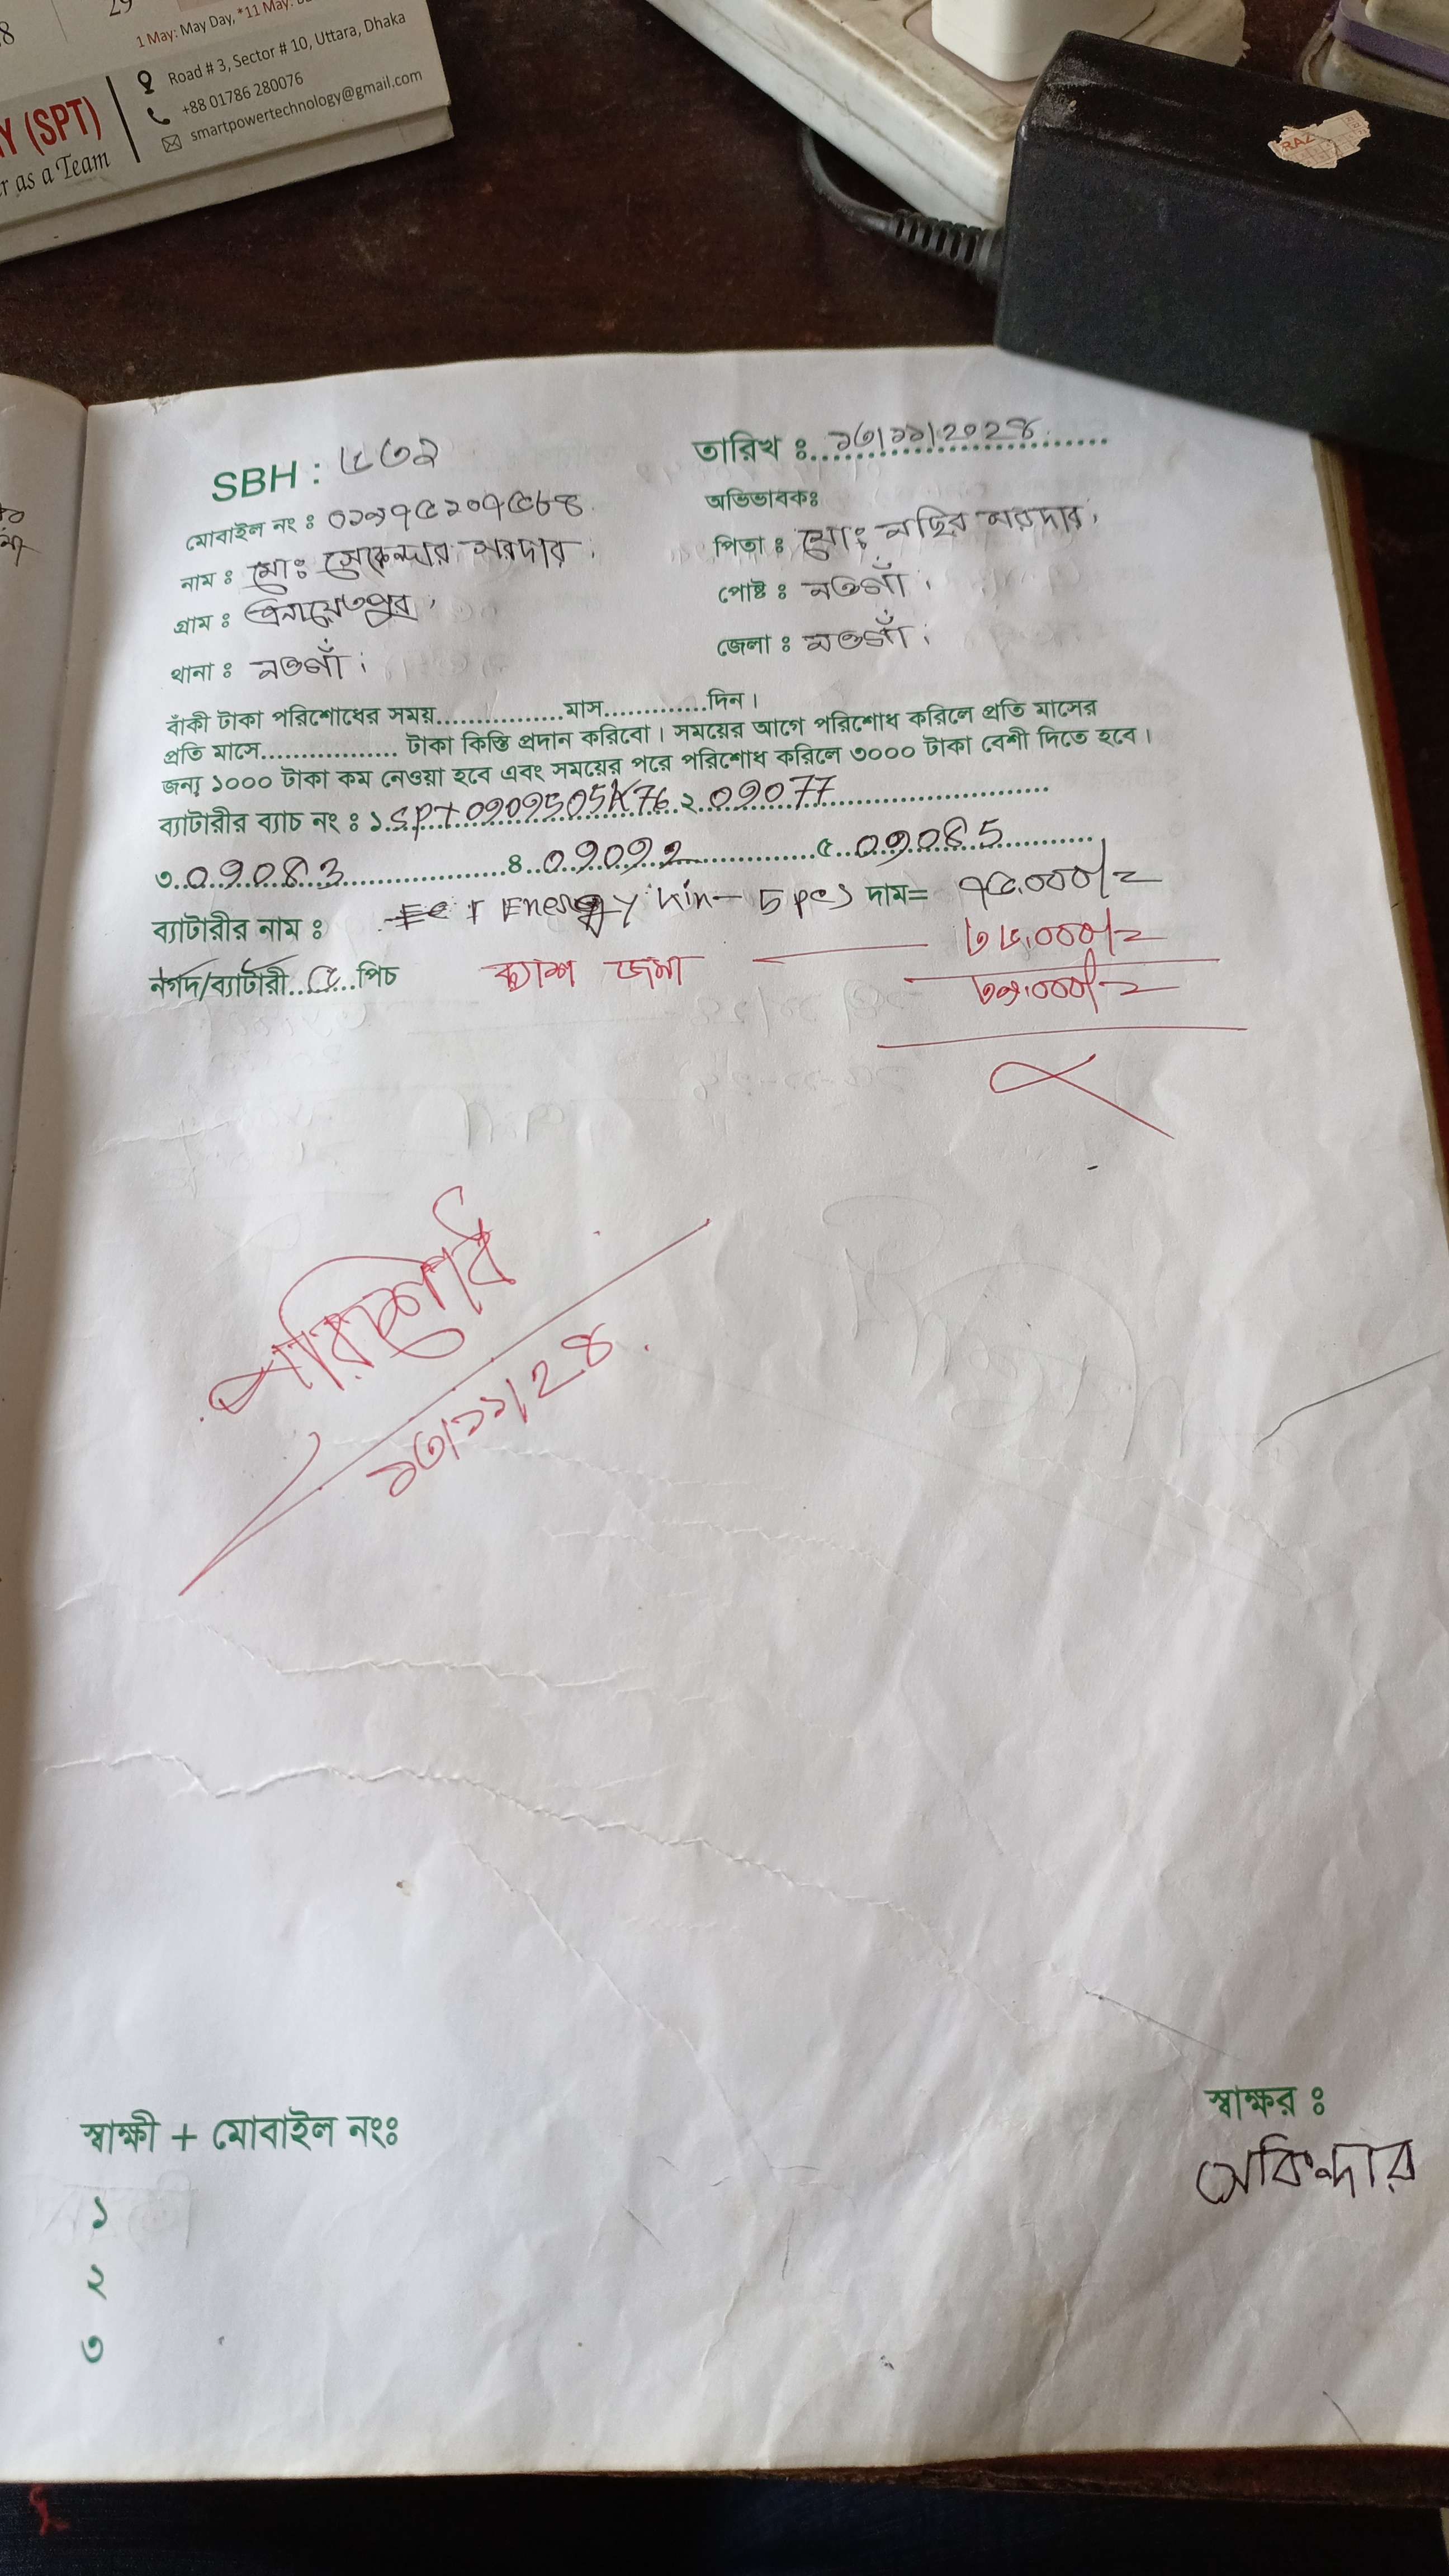 29
1 May: May Day, *11 May:
Y (SPT)
r as a Team
Road # 3, Sector # 10, Uttara, Dhaka
+88 01786 280076
smartpowertechnology@gmail.com
RAZ
SBH : ৫৩২
তারিখ ঃ ১৩/১১/২০২৪
মোবাইল নং ঃ ০১৯৭৫২০৭৫৮৪
অভিভাবকঃ
নাম ঃ মোঃ সেকেন্দার সরদার
পিতা ঃ মোঃ নছির সরদার
গ্রাম ঃ এনায়েতপুর
পোষ্ট ঃ নওগাঁ
থানা ঃ নওগাঁ
জেলা ঃ নওগাঁ
বাঁকী টাকা পরিশোধের সময়................মাস.............দিন।
প্রতি মাসে................. টাকা কিস্তি প্রদান করিবো। সময়ের আগে পরিশোধ করিলে প্রতি মাসের
জন্য ১০০০ টাকা কম নেওয়া হবে এবং সময়ের পরে পরিশোধ করিলে ৩০০০ টাকা বেশী দিতে হবে।
ব্যাটারীর ব্যাচ নং ঃ ১. SPT0909505K76 ২. 09077
৩. 09083 ৪. 09092 ৫. 09085
ব্যাটারীর নাম ঃ Energy kin - 5 pcs দাম= ৭৫,০০০/=
নগদ/ব্যাটারী..৫..পিচ ক্যাশ জমা
পরিশোধ
১৩/১১/২৪
স্বাক্ষী + মোবাইল নংঃ
স্বাক্ষর ঃ
১
২
৩